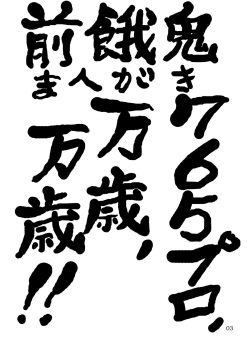 鬼き765プロ,
餓が人万歳,
前ま万歳!!
03